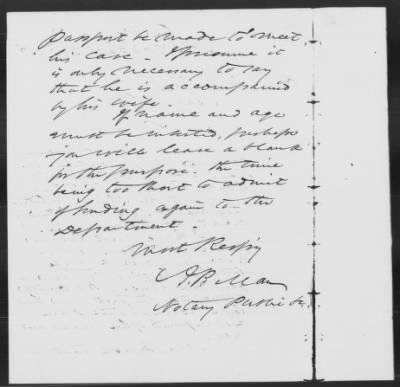 Passport be made to meet
his case. I presume it
is only necessary to say
that he is accompanied
by his wife.
If name and age
must be inserted, perhaps
you will leave a blank
for the purpose. the time
being too short to admit
of sending again to the
Department.
Most Respy
J. B.
Notary Public